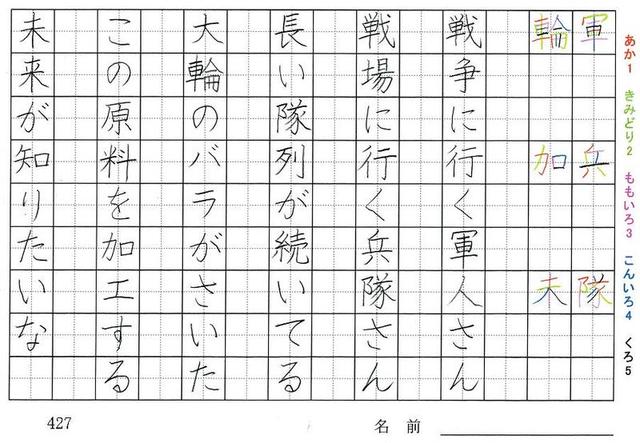 あか1 きみどり2 ももいろ3 こんいろ4 くろ5
軍 兵 隊
輪 加 未
戦争に行く軍人さん
戦場に行く兵隊さん
長い隊列が続いてる
大輪のバラがさいた
この原料を加工する
未来が知りたいな
427
名前